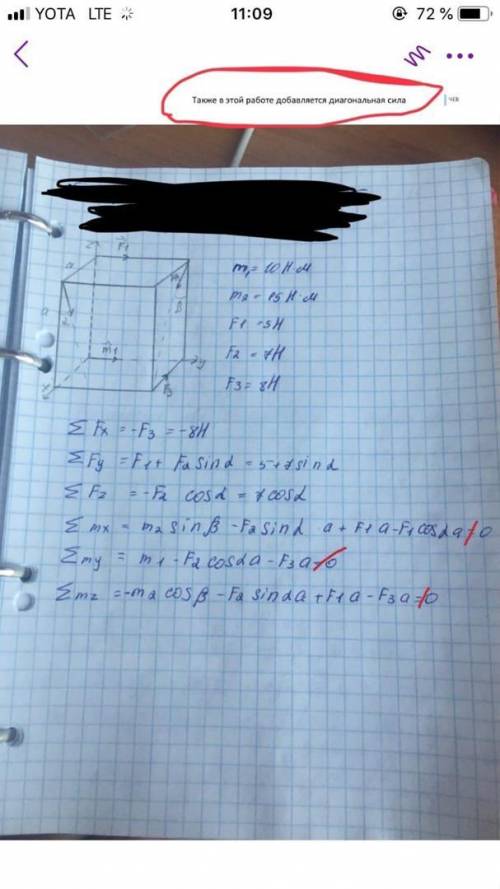 YOTA LTE 11:09 72 %
Также в этой работе добавляется диагональная сила
z F1
a
a
β
m1
y
x
F3
m1 = 10 Н·м
m2 = 15 Н·м
F1 = 5Н
F2 = 7Н
F3 = 8Н
ΣFx = -F3 = -8Н
ΣFy = F1 + F2 sinα = 5+7 sinα
ΣFz = -F2 cosα = 7cosα
Σmx = m2 sinβ - F2 sinα a + F1 a - F1 cosα a = 0
Σmy = m1 - F2 cosα a - F3 a = 0
Σmz = -m2 cosβ - F2 sinα a + F1 a - F3 a = 0